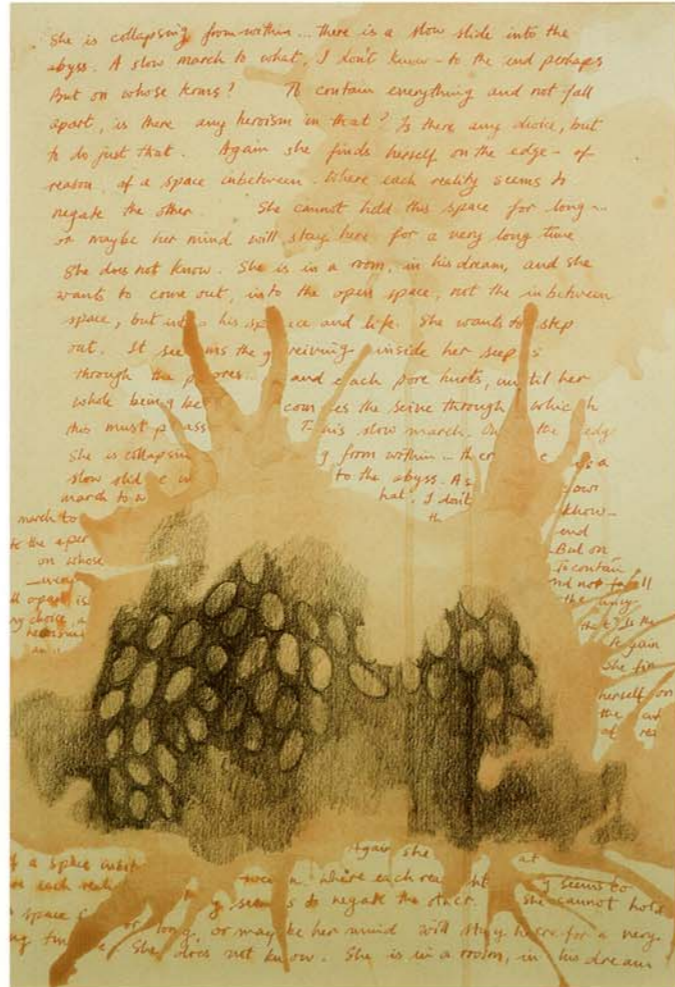 She is collapsing from within... there is a slow slide into the
abyss. A slow march to what, I don't know - to the end perhaps
But on whose terms? To contain everything and not fall
apart, is there any heroism in that? Is there any choice, but
to do just that. Again she finds herself on the edge - of
reason, of a space inbetween. Where each reality seems to
negate the other. She cannot hold this space for long -
or maybe her mind will stay here for a very long time
She does not know. She is in a room, in his dream, and she
wants to come out, into the open space, not the inbetween
space, but into his space and life. She wants to step
out. It seems the greiving inside her seep s
through the p ores... and each pore hurts, un til her
whole being be com es the seive through which
this must p ass T his slow march. On the edge
She is collapsin g from within - ther e is a
slow slid e in to the abyss. A s low
march to w hat, I don't
march to know -
to the th end
on whose But on
every To contain
nd not fa ll
ll apart, is the
ny choice, a tha t? Is the
heroism A gain
She fin
herself on
the
of rea
Again she at
f a space inbet where each rea y seems to
n each reali g seem s to negate the other. She cannot hold
space for long, or may be her mind will stay here for a very
ng tim e. She does not kn ow. She is in a room, in his dream